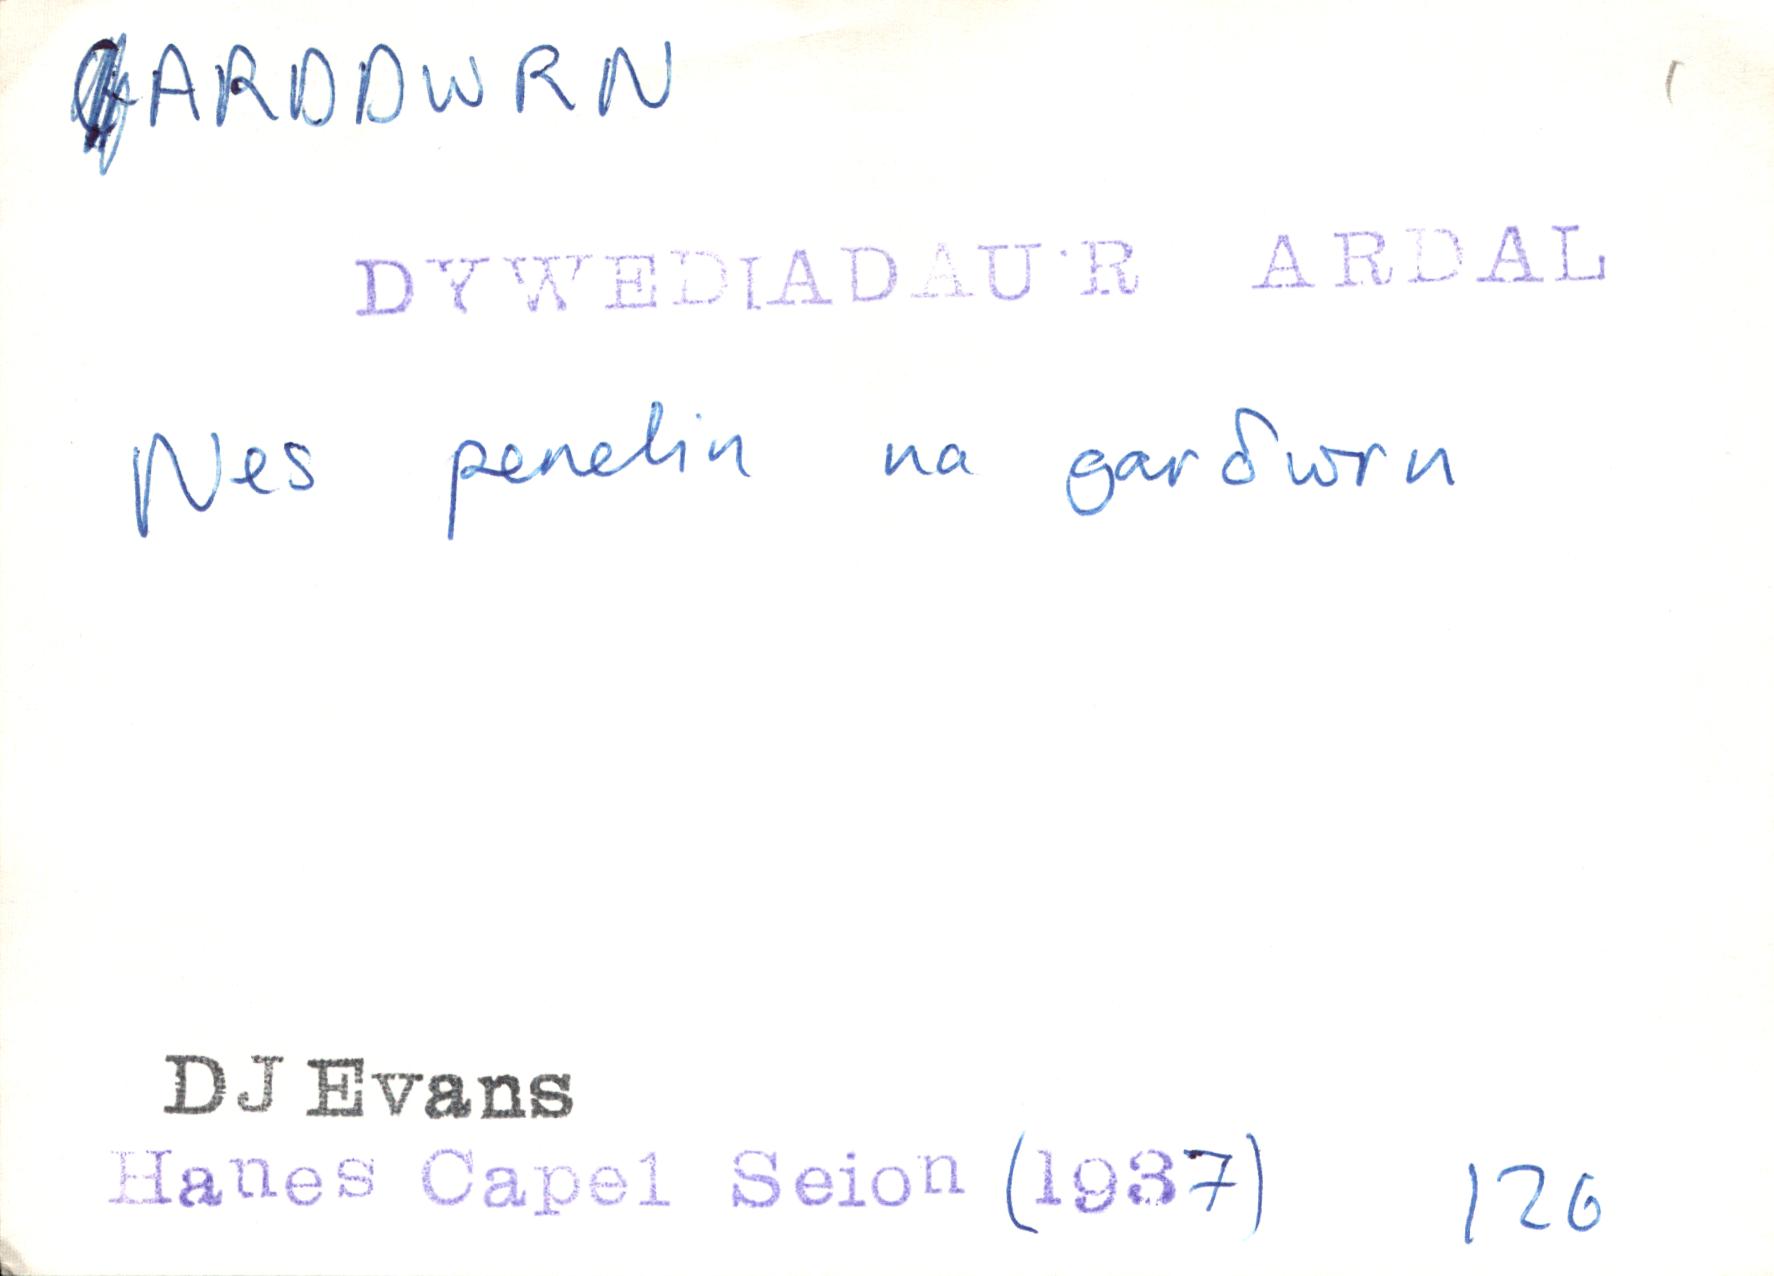 GARDDWRN
DYWEDIADAU'R ARDAL
Nes penelin na garδwrn
DJ Evans
Hanes Capel Seion (1937) 126